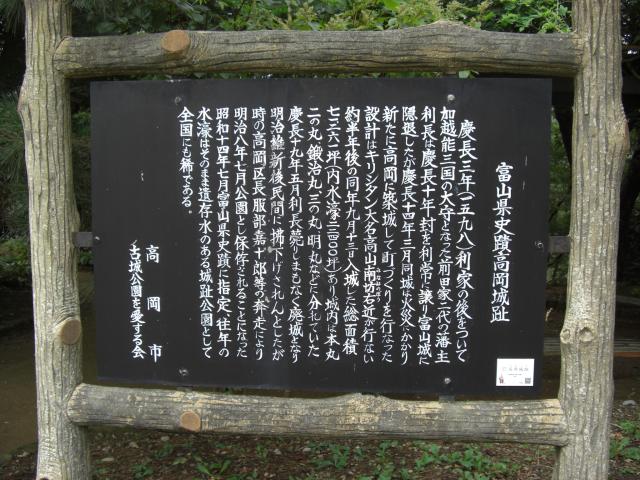 富山県史蹟高岡城趾
慶長三年(一五九八)利家の後をついで
加越能三国の大守となった前田家二代の藩主
利長は慶長十年封を利常に譲り富山城に
隠退したが慶長十四年三月同城は火災にかかり
新たに高岡に築城して町づくりを行なった
設計はキリシタン大名高山南坊右近が行ない
約半年後の同年九月十三日入城した総面積
七三六一坪(内水濠二三四〇〇坪)あり城内は本丸
二の丸鍛治丸三の丸明丸などに分れていた
慶長十九年五月利長薨じまもなく廃城となり
明治維新後民間に拂下げされんとしたが
時の高岡区長服部嘉十郎等の奔走により
明治八年七月公園として保存されることになった
昭和十四年七月富山県史蹟に指定、往年の
水濠はそのまま遺存水のある城趾公園として
全国にも稀である。
高岡市
古城公園を愛する会